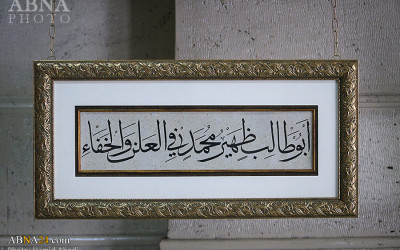 ABNA
PHOTO
أبوطالب ظهير محمد في العلن والخفاء
ABNA24.com